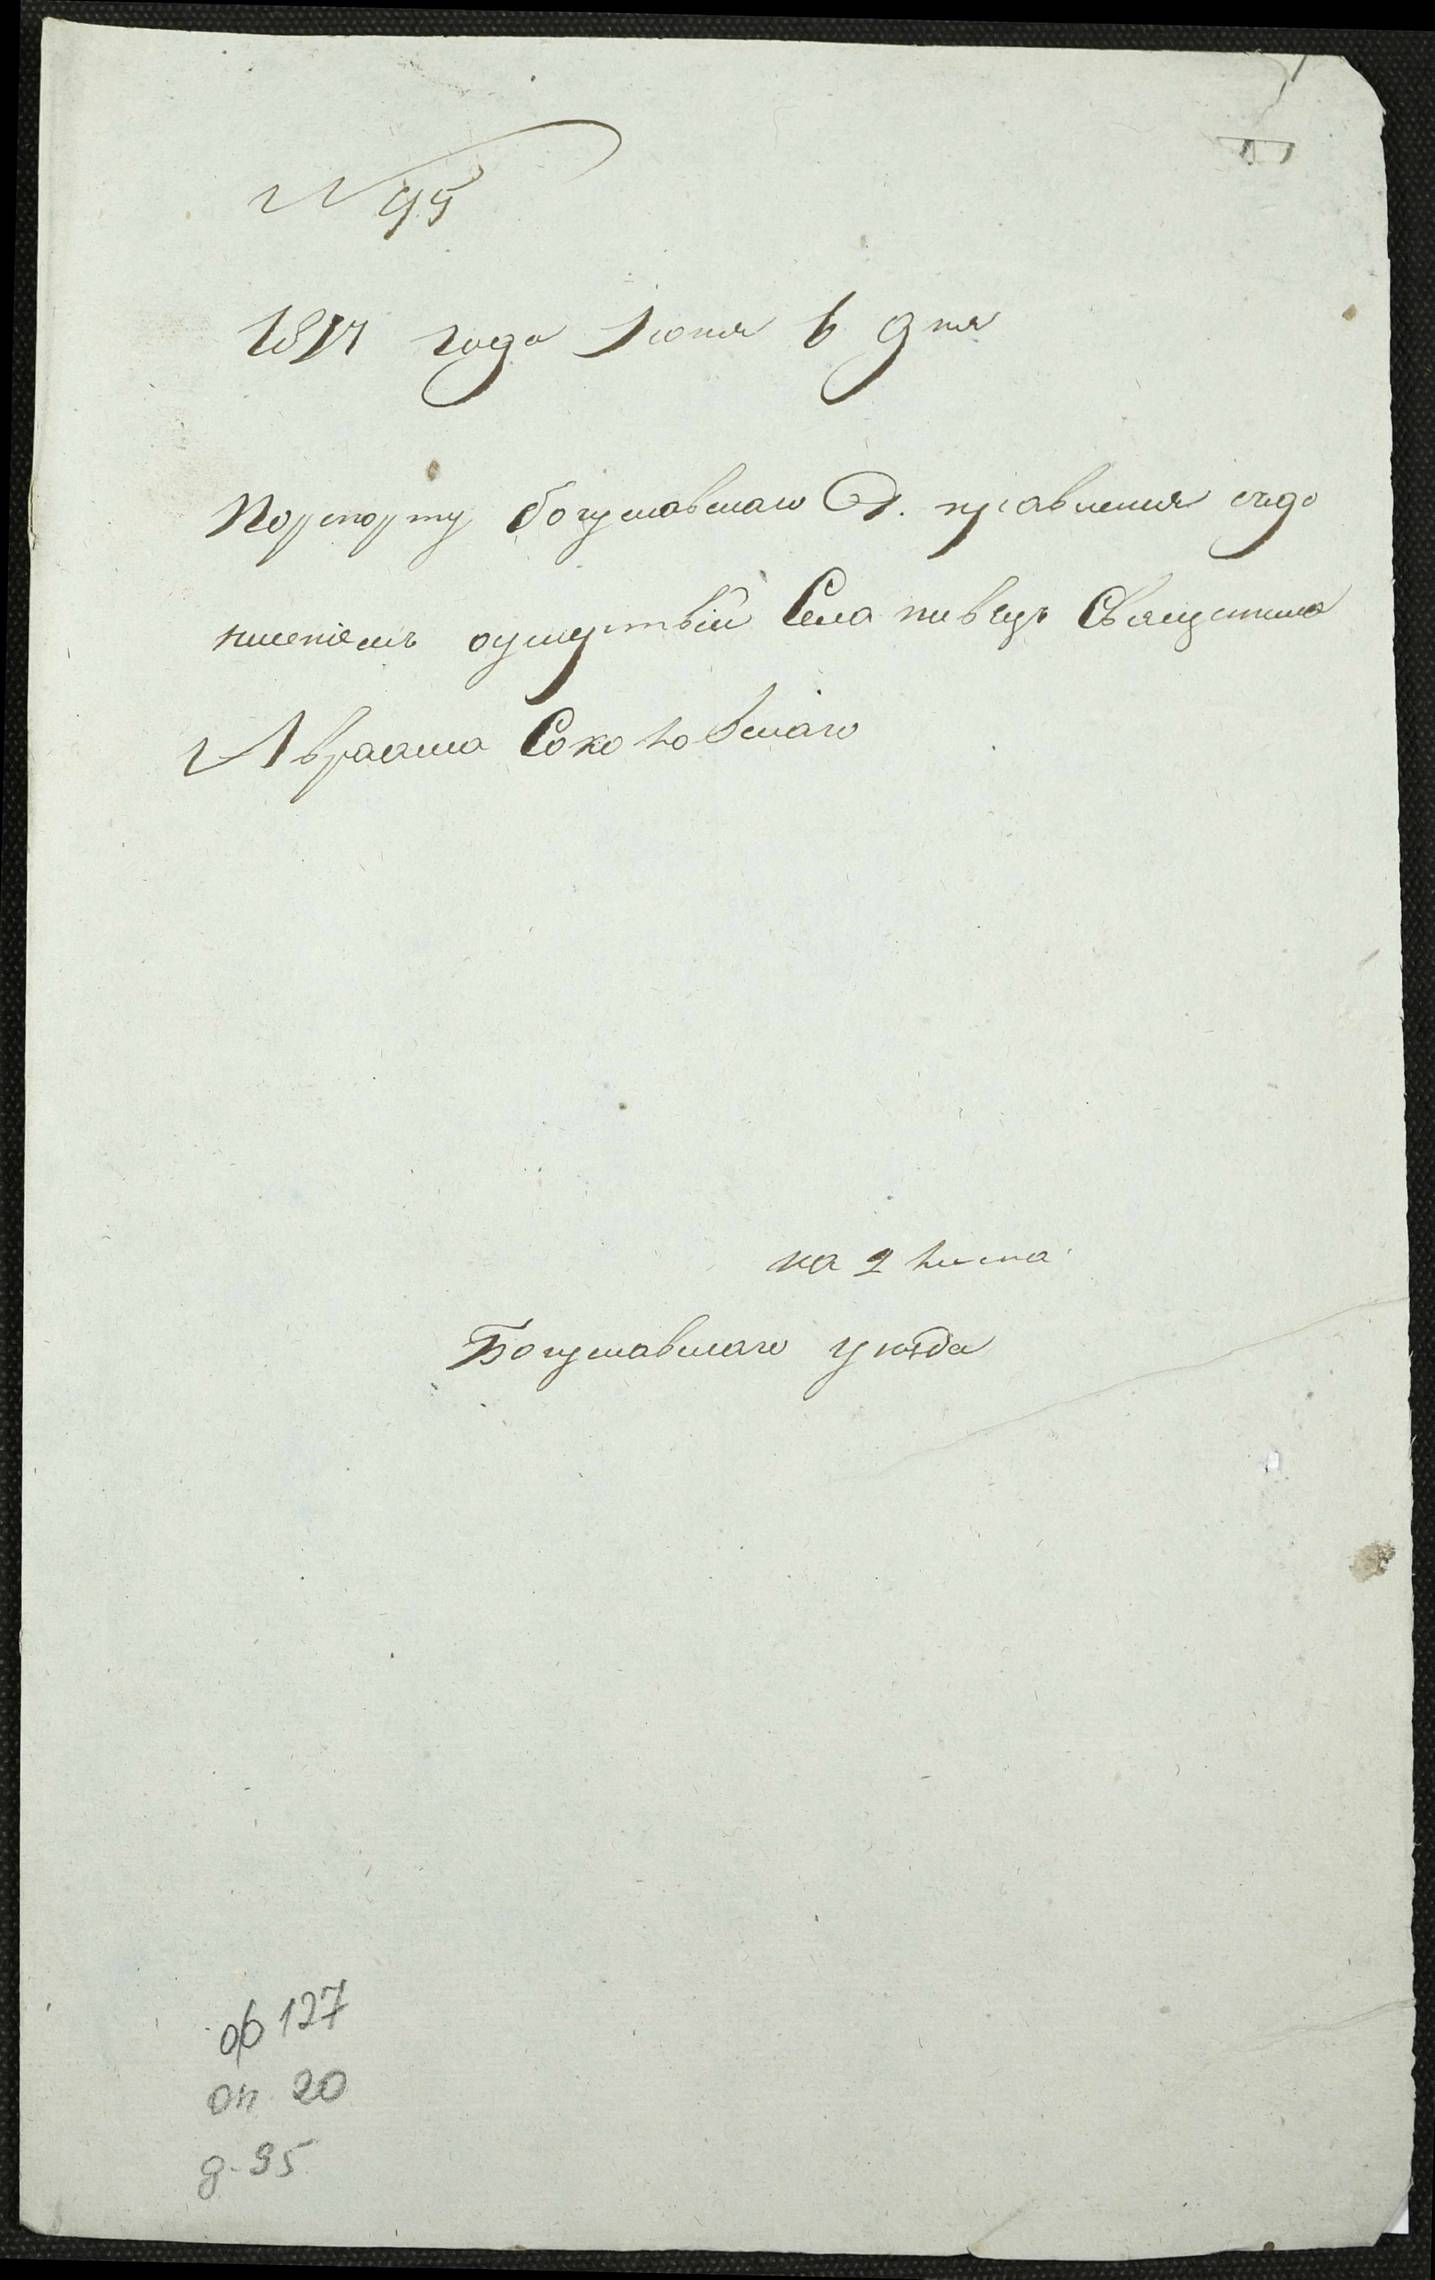 N 95
1817 года Июня 6 дня
По рапорту богуславскаго Д. правления съ до
несениемъ о умертвiи Села пивець Священника
Авраама Соколовскаго
на 2 листа
Богуславскаго уезда
ф 127
оп. 20
д. 95